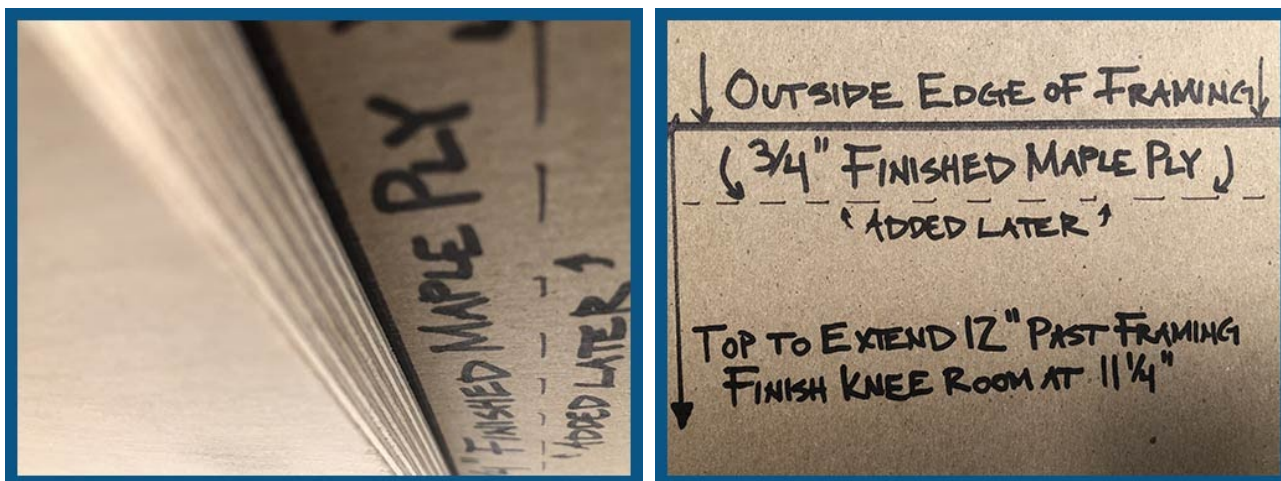 MAPLE PLY
" FINISHED MAPLE PLY
"ADDED LATER
OUTSIDE EDGE OF FRAMING
3/4" FINISHED MAPLE PLY
ADDED LATER
TOP TO EXTEND 12" PAST FRAMING
FINISH KNEE ROOM AT 11 1/4"